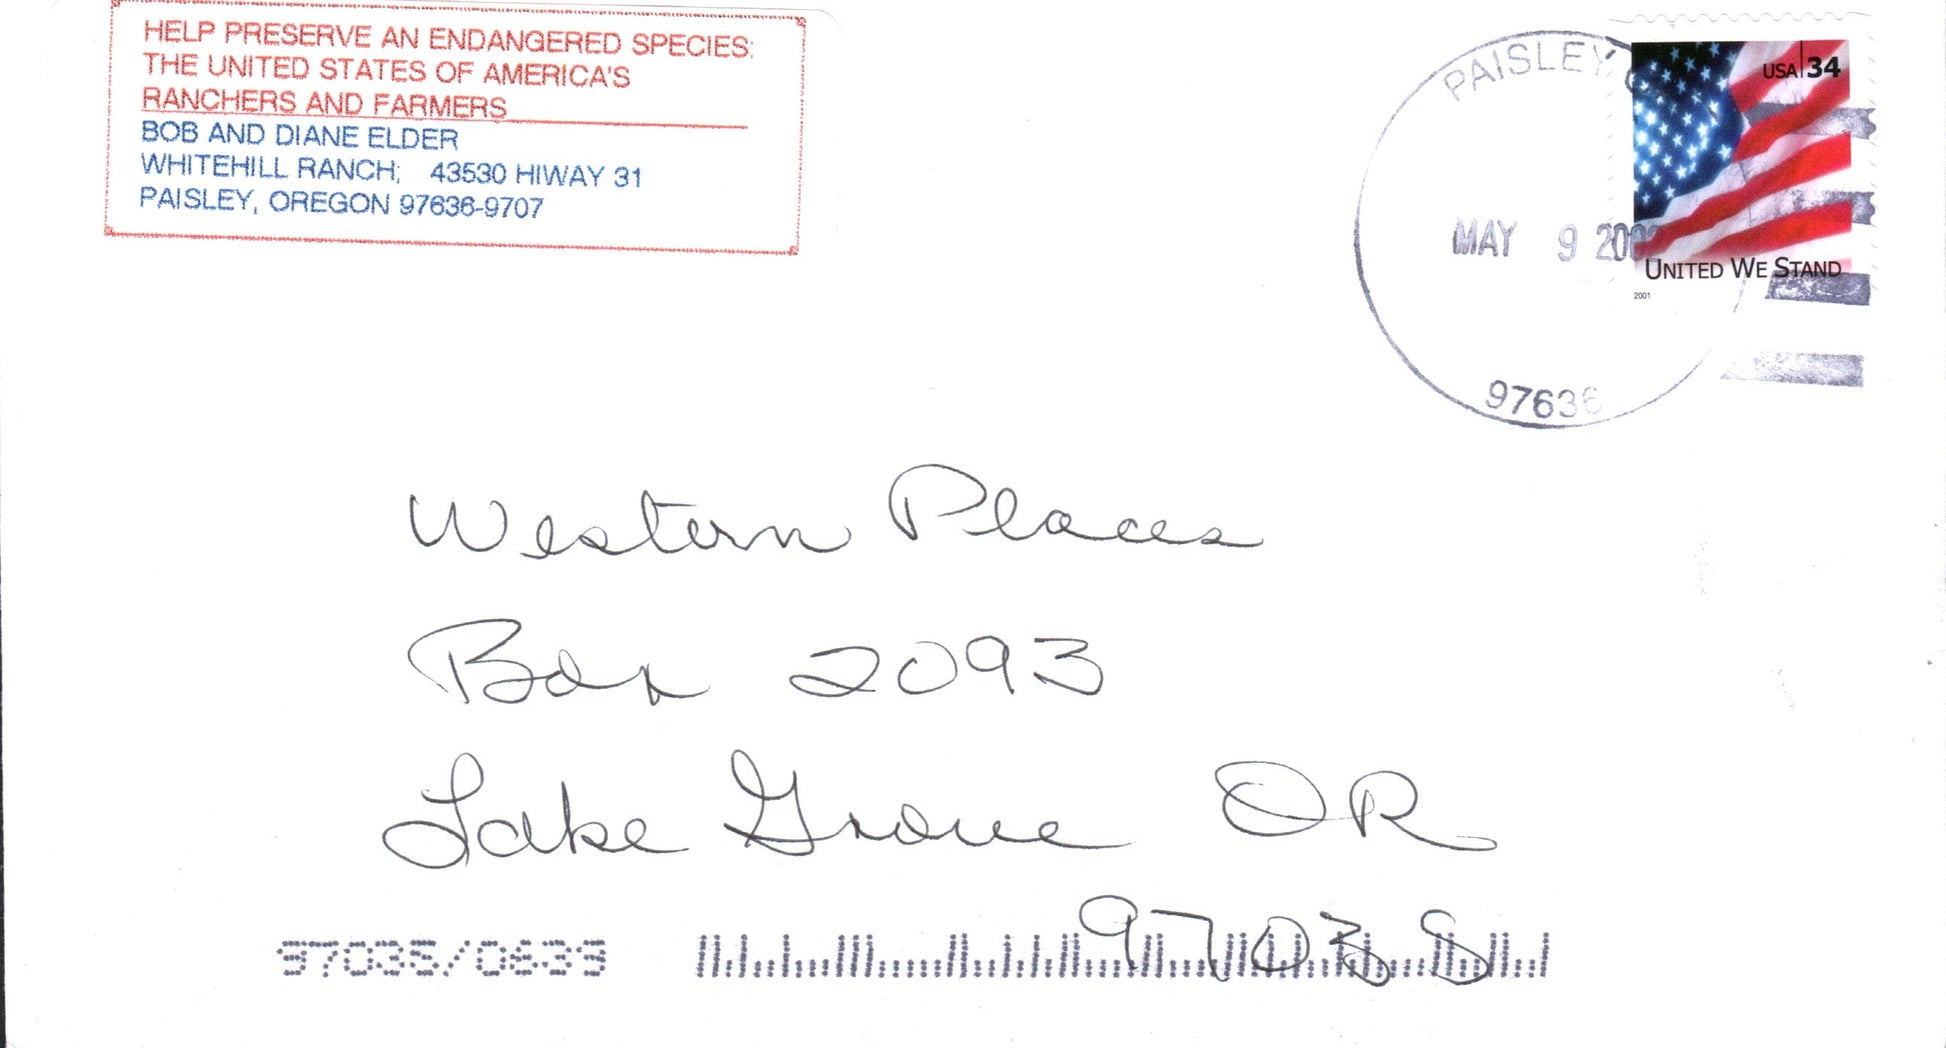 HELP PRESERVE AN ENDANGERED SPECIES:
THE UNITED STATES OF AMERICA'S
RANCHERS AND FARMERS
BOB AND DIANE ELDER
WHITEHILL RANCH; 43530 HIWAY 31
PAISLEY, OREGON 97636-9707
PAISLEY
MAY 9
97636
USA 34
UNITED WE STAND
2001
Western Places
Box 2093
Lake Grove OR
97035